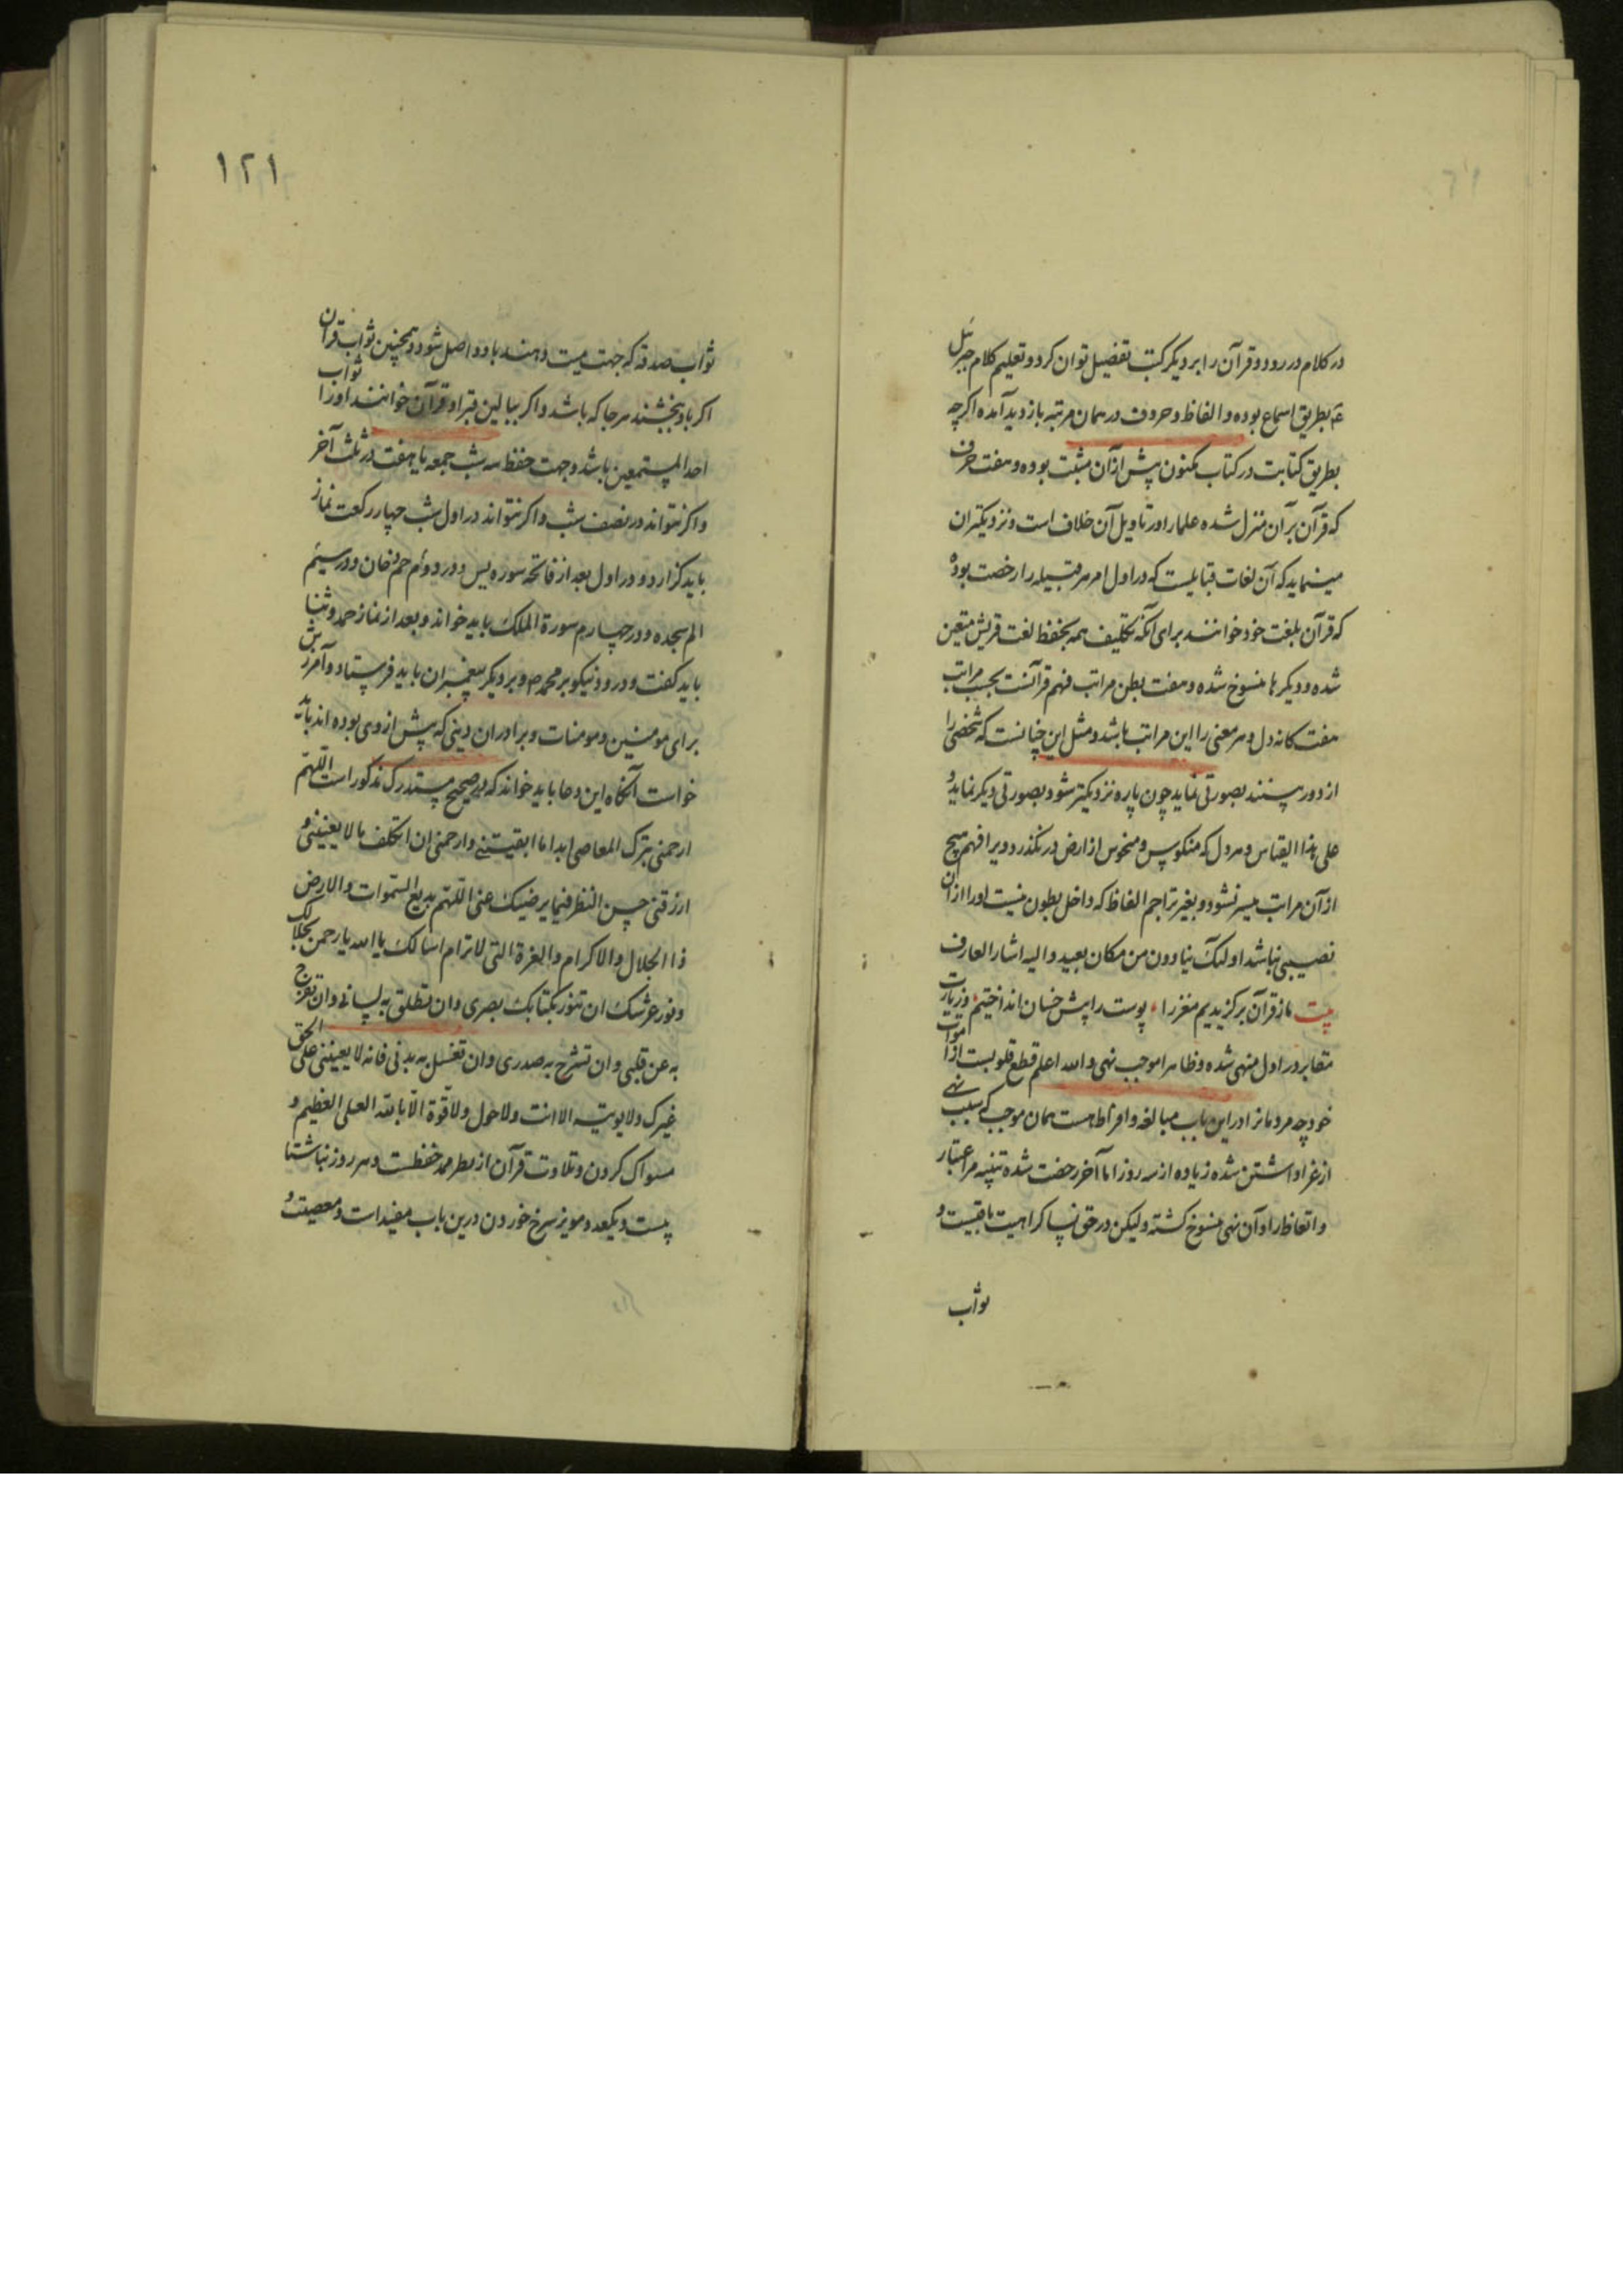 در کلام در رود و قرآن را بر دیکر کتب تفضیل توان کرد و تعلیم کلام جبرئیل
ع بطریق اسماع بوده و الفاظ و حروف در همان مرتبه باز دید آمده اکرچه
بطریق کتابت در کتاب مکنون پیش از آن مثبت بوده و هفت حرف
که قرآن بر آن منزل شده علما را در تاویل آن خلاف است و نزدیکتر آن
مینماید که آن لغات قبایلست که در اول امر هر قبیله را رخصت بوده
که قرآن بلغت خود خوانند برای آنکه تکلیف همه بحفظ لغت قریش متعین
شده و دیکرها منسوخ شده و هفت بطن مراتب فهم قرآنست بحسب مراتب
هفت کانه دل و هر معنی را این مراتب باشد و مثل این چنانست که شخصی را
از دور بینند بصورتی نماید چون پاره نزدیکتر شود بصورتی دیکر نماید و
علی هذا القیاس و هر دل که منکوس و منحوس از ارض در نکذرد ویرا فهم هیچ
از آن مراتب میسر نشود و بغیر تراجم الفاظ که داخل بطون نیست او را از آن
نصیبی نباشد اولئک ینادون من مکان بعید و الیه اشار العارف
بیت ما ز قرآن برکزیدیم مغز را پوست را پیش خسان انداختیم و زیارت
مقابر در اول منهی شده و ظاهرا موجب نهی و الله اعلم قطع قلوبست از اموات
خود چه مردمانرا در این باب مبالغه و افراط هست همان موجب که سبب نهی
از عزا داشتن شده زیاده از سه روز اما آخر رخصت شده تنبیه مر اعتبار
و اتعاظ را و آن نهی منسوخ کشته ولیکن در حق نسا کراهیت باقیست و
ثواب
۱۲۱
ثواب صدقه که جهت میت دهند باو واصل شود و همچنین ثواب قرآن
اکر باو بخشند هر جا که باشد و اکر ببالین قبر او قرآن خوانند او را ثواب
احد المستمعین باشد و جهت حفظ سه شب جمعه یا هفت در ثلث آخر
و اکر نتواند در نصف شب و اکر نتواند در اول شب چهار رکعت نماز
باید کزارد و در اول بعد از فاتحه سوره یس و در دوم حم دخان و در سیم
الم سجده و در چهارم سورة الملک باید خواند و بعد از نماز حمد و ثنا
باید کفت و درود نیکو بر محمد ص و بر دیکر پیغمبران باید فرستاد و آمرزش
برای مومنین و مومنات و برادران دینی که پیش از وی بوده اند باید
خواست آنکاه این دعا باید خواند که در صحیح مستدرک مذکور است اللهم
ارحمنی بترک المعاصی ابدا ما ابقیتنی و ارحمنی ان اتکلف ما لا یعنینی و
ارزقنی حسن النظر فیما یرضیک عنی اللهم بدیع السموات والارض
ذا الجلال والاکرام والعزة التی لا ترام اسالک یا الله یا رحمن بجلالک
و نور عرشک ان تنور بکتابک بصری و ان تطلق به لسانی و ان تفرج
به عن قلبی و ان تشرح به صدری و ان تغسل به بدنی فانه لا یعیننی علی الحق
غیرک ولا یوتیه الا انت ولا حول ولا قوة الا بالله العلی العظیم و
مسواک کردن و تلاوت قرآن از بطر ممد حفظست و هر روز ناشتا
بیست و یکعدد مویز سرخ خوردن درین باب مفید است و معصیت و